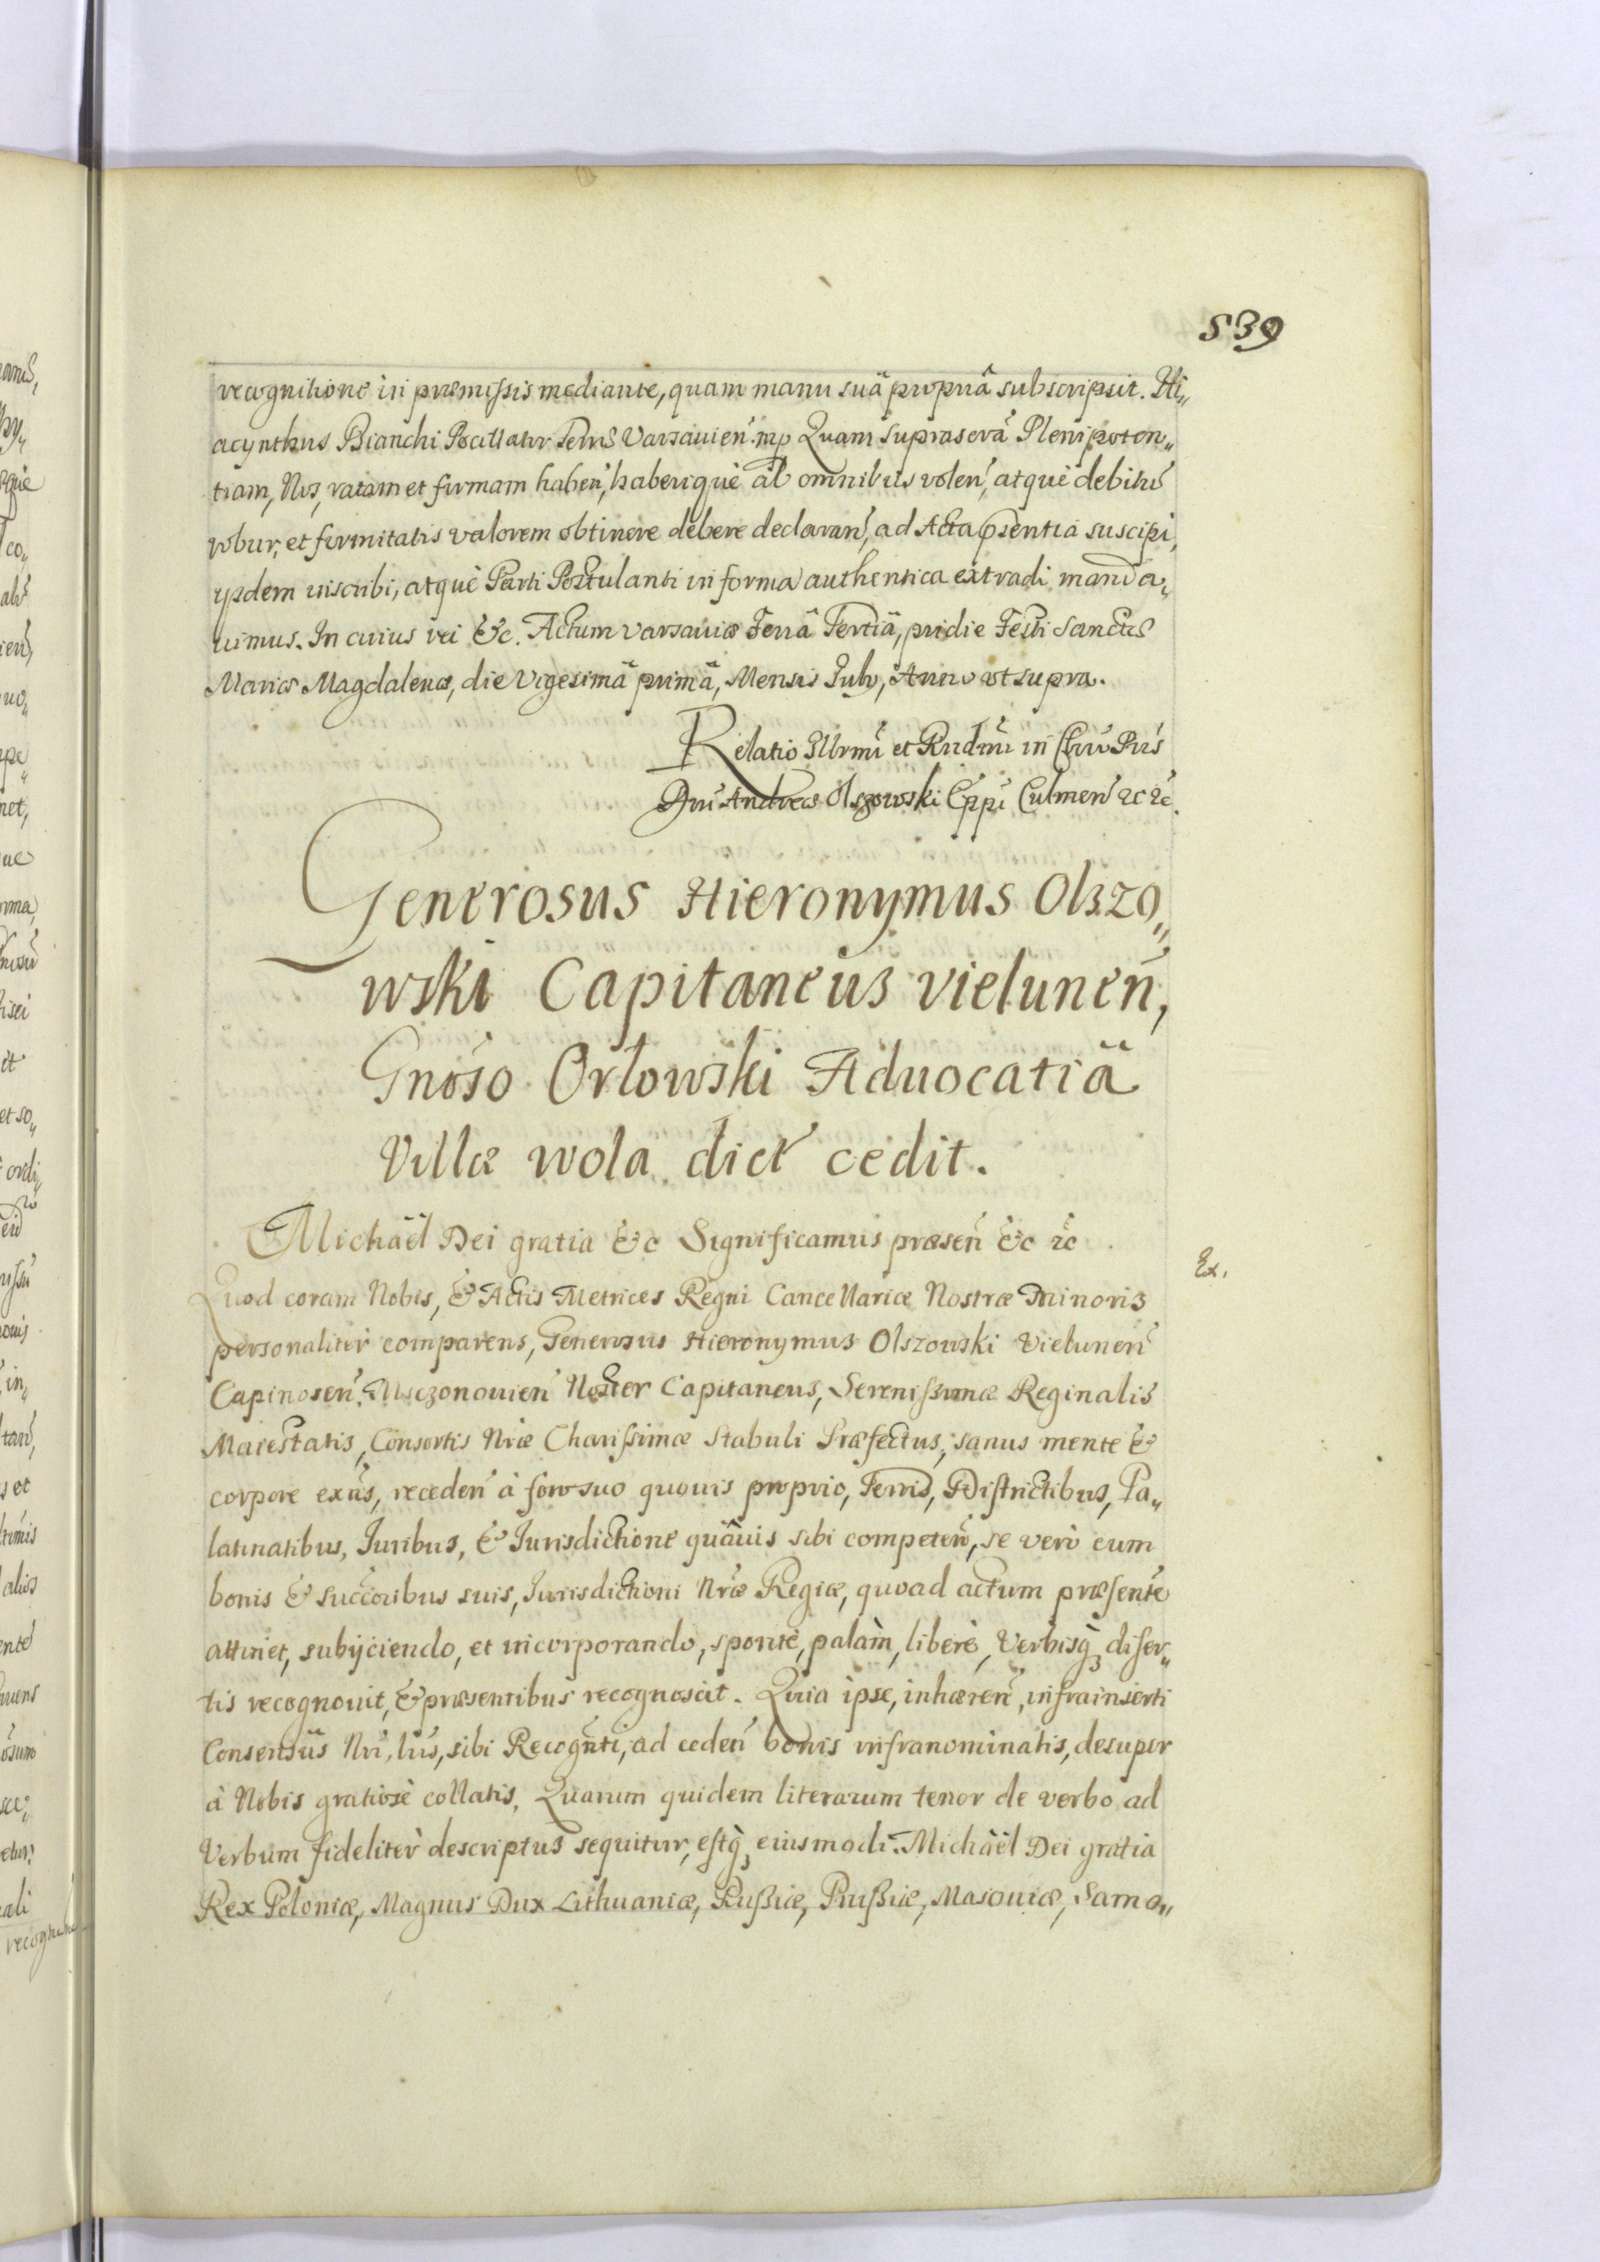 539
recognitione in præmissis mediante, quam manu suâ propriâ subscripsit. Hi„
acynthus Bianchi Pocillator Terræ Varsavien̄. mp Quam suprascrã Plenipoten„
tiam, Nos, ratam et firmam haben̄, haberique ab omnibus volen̄, atque debitū
robur, et firmitatis valorem obtinere debere declaran̄, ad Acta p̄sentia suscipi,
ijsdem inscribi, atque Parti Postulanti in forma authentica extradi manda„
uimus. In cuius rei &c. Actum Varsauiæ Feriâ Tertiâ, pridie Festi Sanctæ
Mariæ Magdalenæ, die Vigesimâ primâ, Mensis July, Anno vt supra.
Relatio Illrm̄i et Rndm̄i in Chrō Pr̄is
Dn̄i Andreæ Olszowski Ep̄pi Culmen̄ &c &c.
Generosus Hieronymus Olszo„
wski Capitaneus vielunen̄,
Gnōso Orłowski Aduocatiâ
Villæ wola dict̄ cedit.
Michaël Dei gratia &c Significamus præsen̄ &c &c
Ex.
Quod coram Nobis, & Actis Metrices Regni Cancellariæ Nostræ Minoris
personaliter comparens, Generosus Hieronymus Olszowski Vielunen̄
Capinosen̄, Msczonouien̄ Noster Capitaneus, Serenissimæ Reginalis
Maiestatis, Consortis Nr̄æ Charissimæ Stabuli Præfectus, sanus mente &
corpore exn̄s, receden̄ à foro suo quouis proprio, Terris, Districtibus, Pa„
latinatibus, Juribus, & Jurisdictione quâuis sibi competen̄, se verò cum
bonis & succōribus suis, Jurisdictioni Nr̄æ Regiæ, quoad actum præsentē
attinet, subijciendo, et incorporando, sponte, palàm, liberè, Verbisq̨ diser„
tis recognouit, & præsentibus recognoscit. Quia ipse, inhæren̄, infrainserti
Consensûs Nr̄i, lr̄is, sibi Recogn̄ti, ad ceden̄ bonis infranominatis, desuper
à Nobis gratiosè collatis, Quarum quidem literarum tenor de verbo ad
Verbum fideliter descriptus sequitur, estq̨ eiusmodi. Michaël Dei gratia
Rex Poloniæ, Magnus Dux Lithuaniæ, Russiæ, Prussiæ, Masouiæ, Samo„